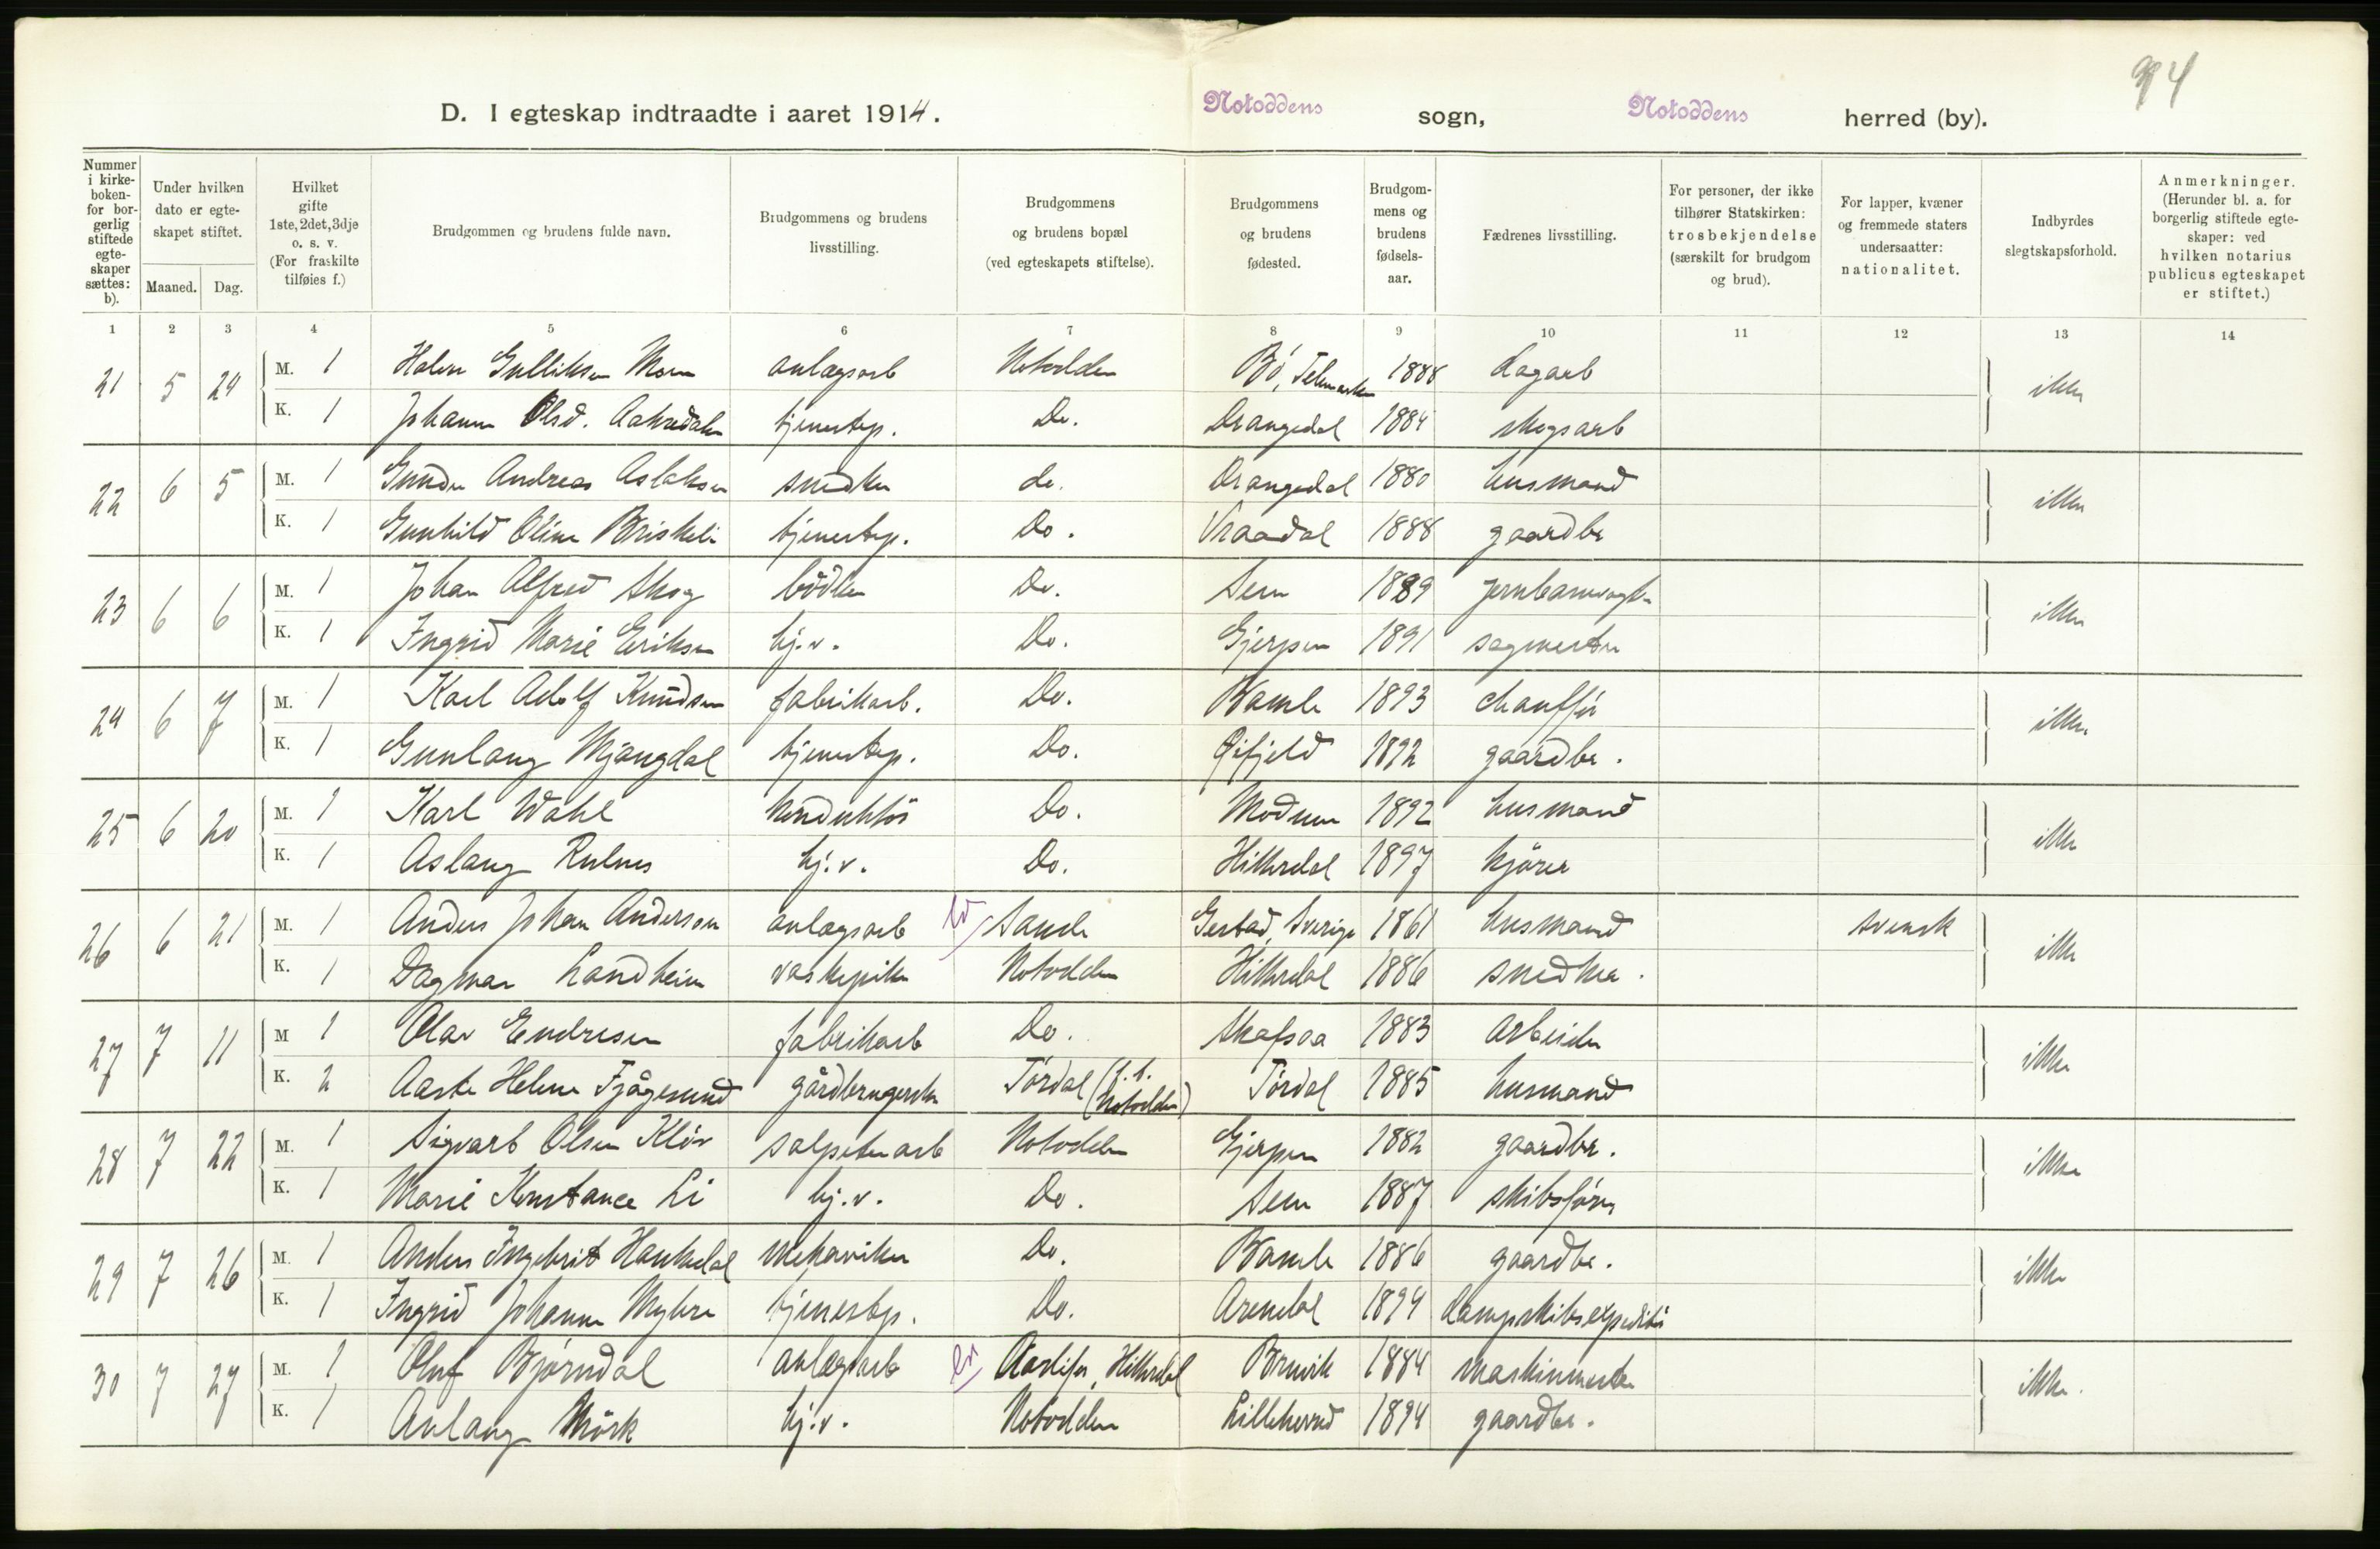 94
D. I egteskap indtraadte i aaret 1914. Notoddens sogn, Notoddens herred (by).
Nummer i kirkeboken- for borgerlig stiftede egteskaper sættes: b).
Under hvilken dato er egteskapet stiftet.
Maaned. Dag.
Hvilket gifte 1ste, 2det, 3dje o. s. v. (For fraskilte tilføies f.)
Brudgommen og brudens fulde navn.
Brudgommens og brudens livsstilling.
Brudgommens og brudens bopæl (ved egteskapets stiftelse).
Brudgommens og brudens fødested.
Brudgommens og brudens fødselsaar.
Fædrenes livsstilling.
For personer, der ikke tilhører Statskirken: trosbekjendelse (særskilt for brudgom og brud).
For lapper, kvæner og fremmede staters undersaatter: nationalitet.
Indbyrdes slegtskapsforhold.
Anmerkninger. (Herunder bl. a. for borgerlig stiftede egteskaper: ved hvilken notarius publicus egteskapet er stiftet.)
1 2 3 4 5 6 7 8 9 10 11 12 13 14
21 5 24 M. 1 Halvor Gulliksen Moen anlægsarb Notodden Bö, Telemarken 1888 dagarb ikke
K. 1 Johanne Olsd. Aakredalen tjenestep. Do. Drangedal 1884 skogsarb
22 6 5 M. 1 Gunder Andreas Aslaksen snedker do. Drangedal 1880 husmand ikke
K. 1 Gunhild Oline Briskeli tjenestep. Do. Vraadal 1888 gaardbr
23 6 6 M. 1 Johan Alfred Skog bödker Do. Sem 1889 jernbanevogter ikke
K. 1 Ingrid Marie Eriksen hj.v. Do. Gjerpen 1891 sagmester
24 6 7 M. 1 Karl Adolf Knudsen fabrikarb. Do. Bamle 1893 chauffør ikke
K. 1 Gunlaug Mjaugdal tjenestep. Do. Øifjeld 1892 gaardbr.
25 6 20 M. 1 Karl Wahl konduktör Do. Modum 1892 husmand ikke
K. 1 Aslaug Rulnes hj.v. Do. Hitterdal 1897 kjörer
26 6 21 M. 1 Anders Johan Anderson anlægsarb Sande Gestad, Sverige 1861 husmand svensk ikke
K. 1 Dagmar Landheim vaskepike Notodden Hitterdal 1886 snedker.
27 7 11 M 1 Olav Endresen fabrikarb Do. Skafsaa 1883 arbeider ikke
K. 2 Aaste Helene Fjågesund gårdbrugerske Tördal (f.t. Notodden) Tördal 1885 husmand
28 7 22 M. 1 Sigvart Olsen Klöv salpeterarb Notodden Gjerpen 1882 gaardbr. ikke
K. 1 Marie Konstance Li hj.v. Do. Sem 1887 skibsförer
29 7 26 M. 1 Anders Ingebrit Haukedal mekaniker Do. Bamle 1886 gaardbr. ikke
K. 1 Ingrid Johanne Myhre tjenestep. Do. Arendal 1894 dampskibsexpeditör
30 7 27 M. 1 Oluf Bjørndal anlægsarb Aarlifos, Hitterdal Brevik 1884 maskinmester ikke.
K. 1 Aslaug Mörk hj.v. Notodden Lilleherred 1894 gaardbr.